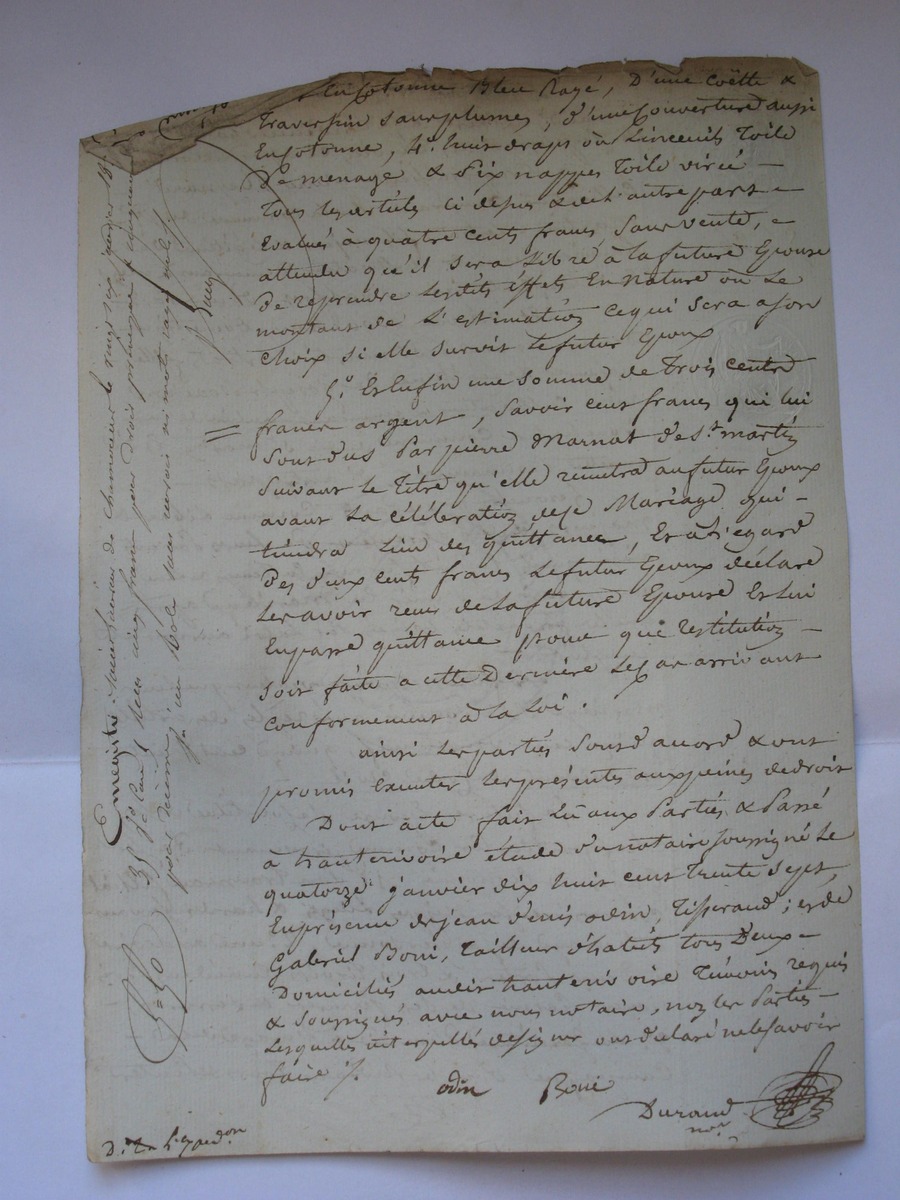 En Cotonne Bleu Rayé, D'une Coëtte &
Traversin sans plumes, d'une Couverture aussi
En Cotonne, 4.° huit draps ou Linceuils Toile
De menage & Six nappes Toile
Tous les articles Ci dessus & de l'autre part
Evalués à quatre cents francs Sans vente,
attendu qu'il sera Libre à la future Epouse
De reprendre les dits effets En Nature ou Le
montant de L'estimation ce qui sera a son
choix si elle survit le futur Epoux
5.° Et Enfin une somme de Trois cents
francs argent, Savoir cent francs qui lui
Sont dus Par pierre Marnat de S.t martin
Suivant le Titre qu'elle remettra au futur Epoux
avant la célébration de ce Mariage qui
tiendra Lieu de quittance, Et à l'égard
Des deux cents francs Le futur Epoux déclare
Les avoir recus de la future Epouse Et lui
En passe quittance promet que restitution
soit faite a cette Derniere le cas arrivant
conformement à la Loi.
ainsi les parties sont d'accord & ont
promis Executer les présentes aux peines de droit
Dont acte fait Lû aux Parties & Passé
à hauterivoire étude du notaire soussigné Le
quatorze janvier dix huit cent trente sept,
En présence de jean denis odin, Tisserand; et de
Gabriel Boni, Tailleur d'habits tous Deux
Domiciliés audit hauterivoire Témoins requis
& soussignés avec nous notaire, non les Parties
Lesquelles interpellés de signer ont déclaré ne le savoir
faire /.
odin Boni
Durand
no.re
Enregistré à
le vingt six janvier 18
35 cinq francs pour droit
pour décime, un Rôle sans renvoi ni mots rayés nuls
5=50